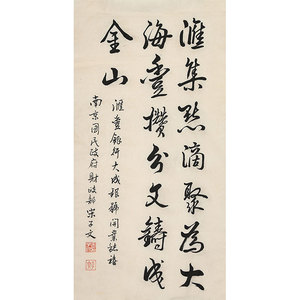 滙集點滴聚為大
海豐攢分文鑄成
金山
滙豐銀行大成根號開業誌禧
南京國民政府財政部宋子文